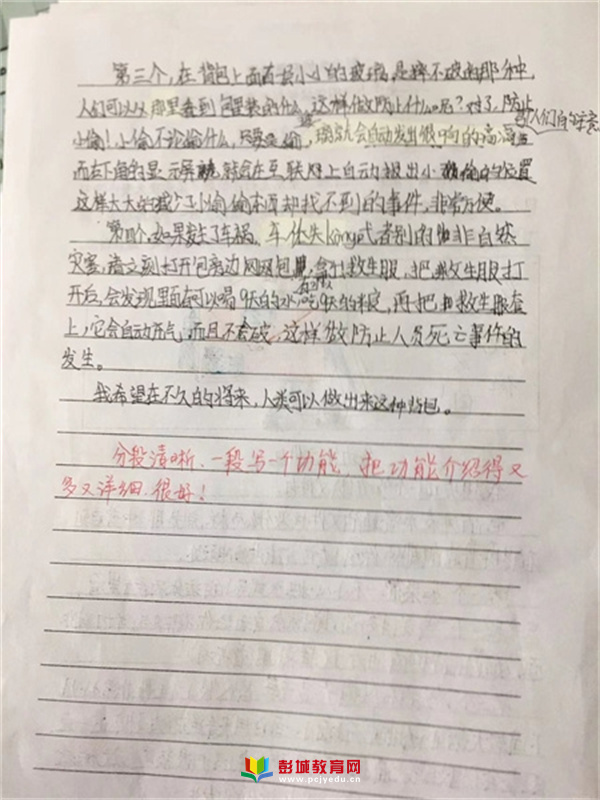 第三个,在背包上面有一层小小的玻璃,是摔不破的那种,
人们可以从那里看到包里装的什么,这样做防止什么呢?对了,防止
小偷!小偷不论偷什么,只要是偷,玻璃就会自动发出很响的高
而右下角的显示屏就会在互联网上自动报出小偷的位置
这样大大的减少了小偷偷东西却找不到的事件,非常方便。
第四个,如果发生了车祸、车体失kong或者别的非自然
灾害,请立刻打开包旁边网兜包,拿出救生服,把救生服打
开后,会发现里面有可以喝9天的水,吃9天的粮食,再把救生服套
上,它会自动充气,而且不会破,这样做防止人员死亡事件的
发生。
我希望在不久的将来,人类可以做出来这种背包。
分段清晰、一段写一个功能,把功能介绍得又
多又详细,很好!
彭城教育网
www.pcjyedu.cn